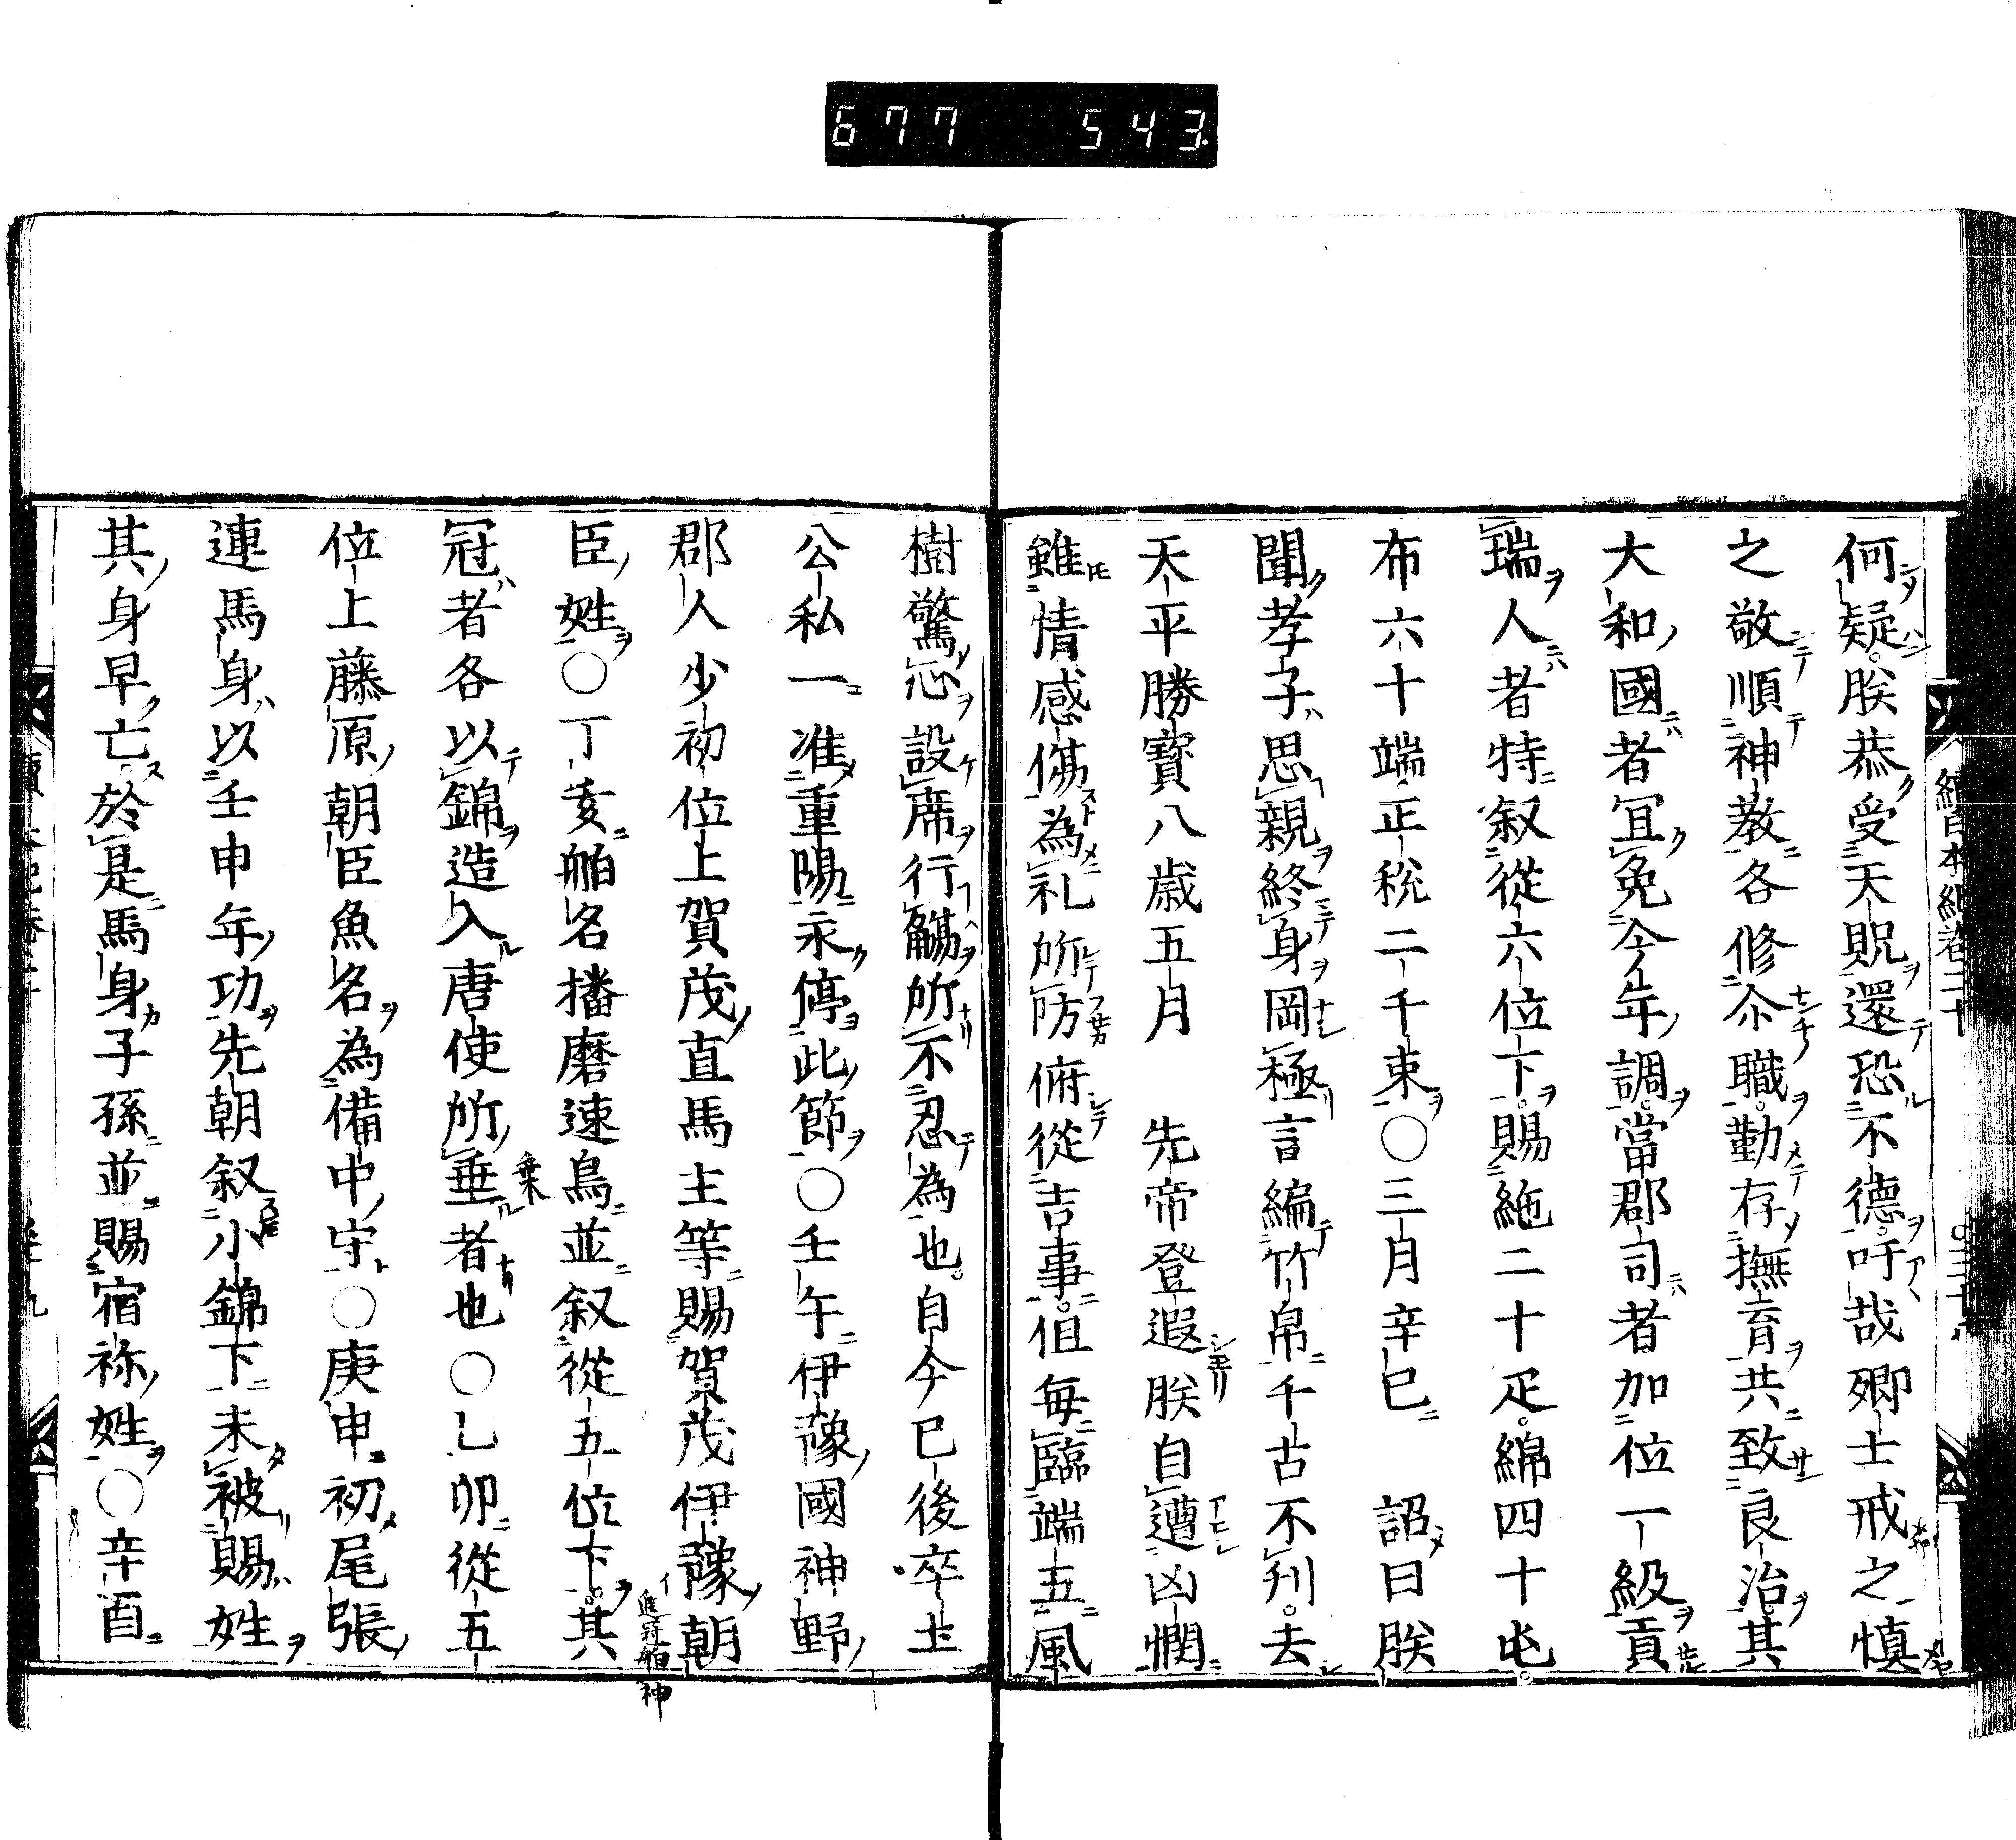 677 543
續日本紀卷二十
何疑。朕恭受天貺還恐不德。吁哉卿士戒之慎
之敬順神教各修尒職。勤存撫育共致良治。其
大和國者冝免今年調。當郡司者加位一級貢
瑞人者特叙從六位下。賜絁二十疋。綿四十屯。
布六十端正税二千束○三月辛巳　詔曰朕
聞孝子思親終身岡極言編竹帛千古不刋。去
天平勝寳八歳五月　先帝登遐朕自遭凶憫
雖情感傷為礼所防俯從吉事。但每臨端五風
樹驚心設席行觴所不忍為也。自今已後率土
公私一准重陽永停此節○壬午伊豫國神野
郡人少初位上賀茂直馬主等賜賀茂伊豫朝
臣姓○丁亥舶名播磨速鳥並叙從五位下。其
冠者各以錦造入唐使所垂者也○乙卯從五
位上藤原朝臣魚名為備中守○庚申初尾張
連馬身以壬申年功先朝叙小錦下未被賜姓
其身早亡於是馬身子孫並賜宿祢姓○辛酉